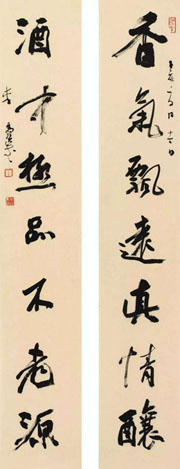 香氣飄遠真情釀
酒中極品不老源